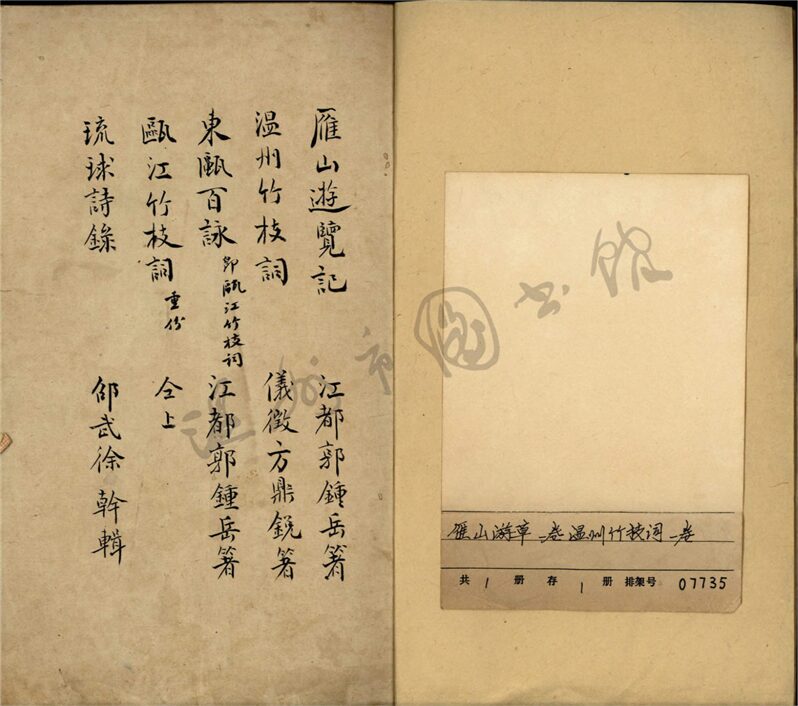 雁山遊覽記 江都郭鍾岳箸
温州竹枝詞 儀徵方鼎銳箸
東甌百詠 即甌江竹枝詞 江都郭鍾岳箸
甌江竹枝詞 重份 仝上
琉球詩錄 邵武徐榦輯
温州市圖书館
雁山游草一卷温州竹枝词一卷
共 1 册 存 1 册 排架号 07735